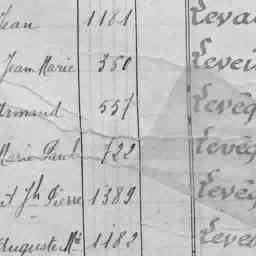 Jean 1181 Leva
Jean Marie 350 Levei
Armand 557 Levêq
Marie Paul 722 Levêq
t Jh Pierre 1389 Levêq
Auguste Mie 1182 Leves